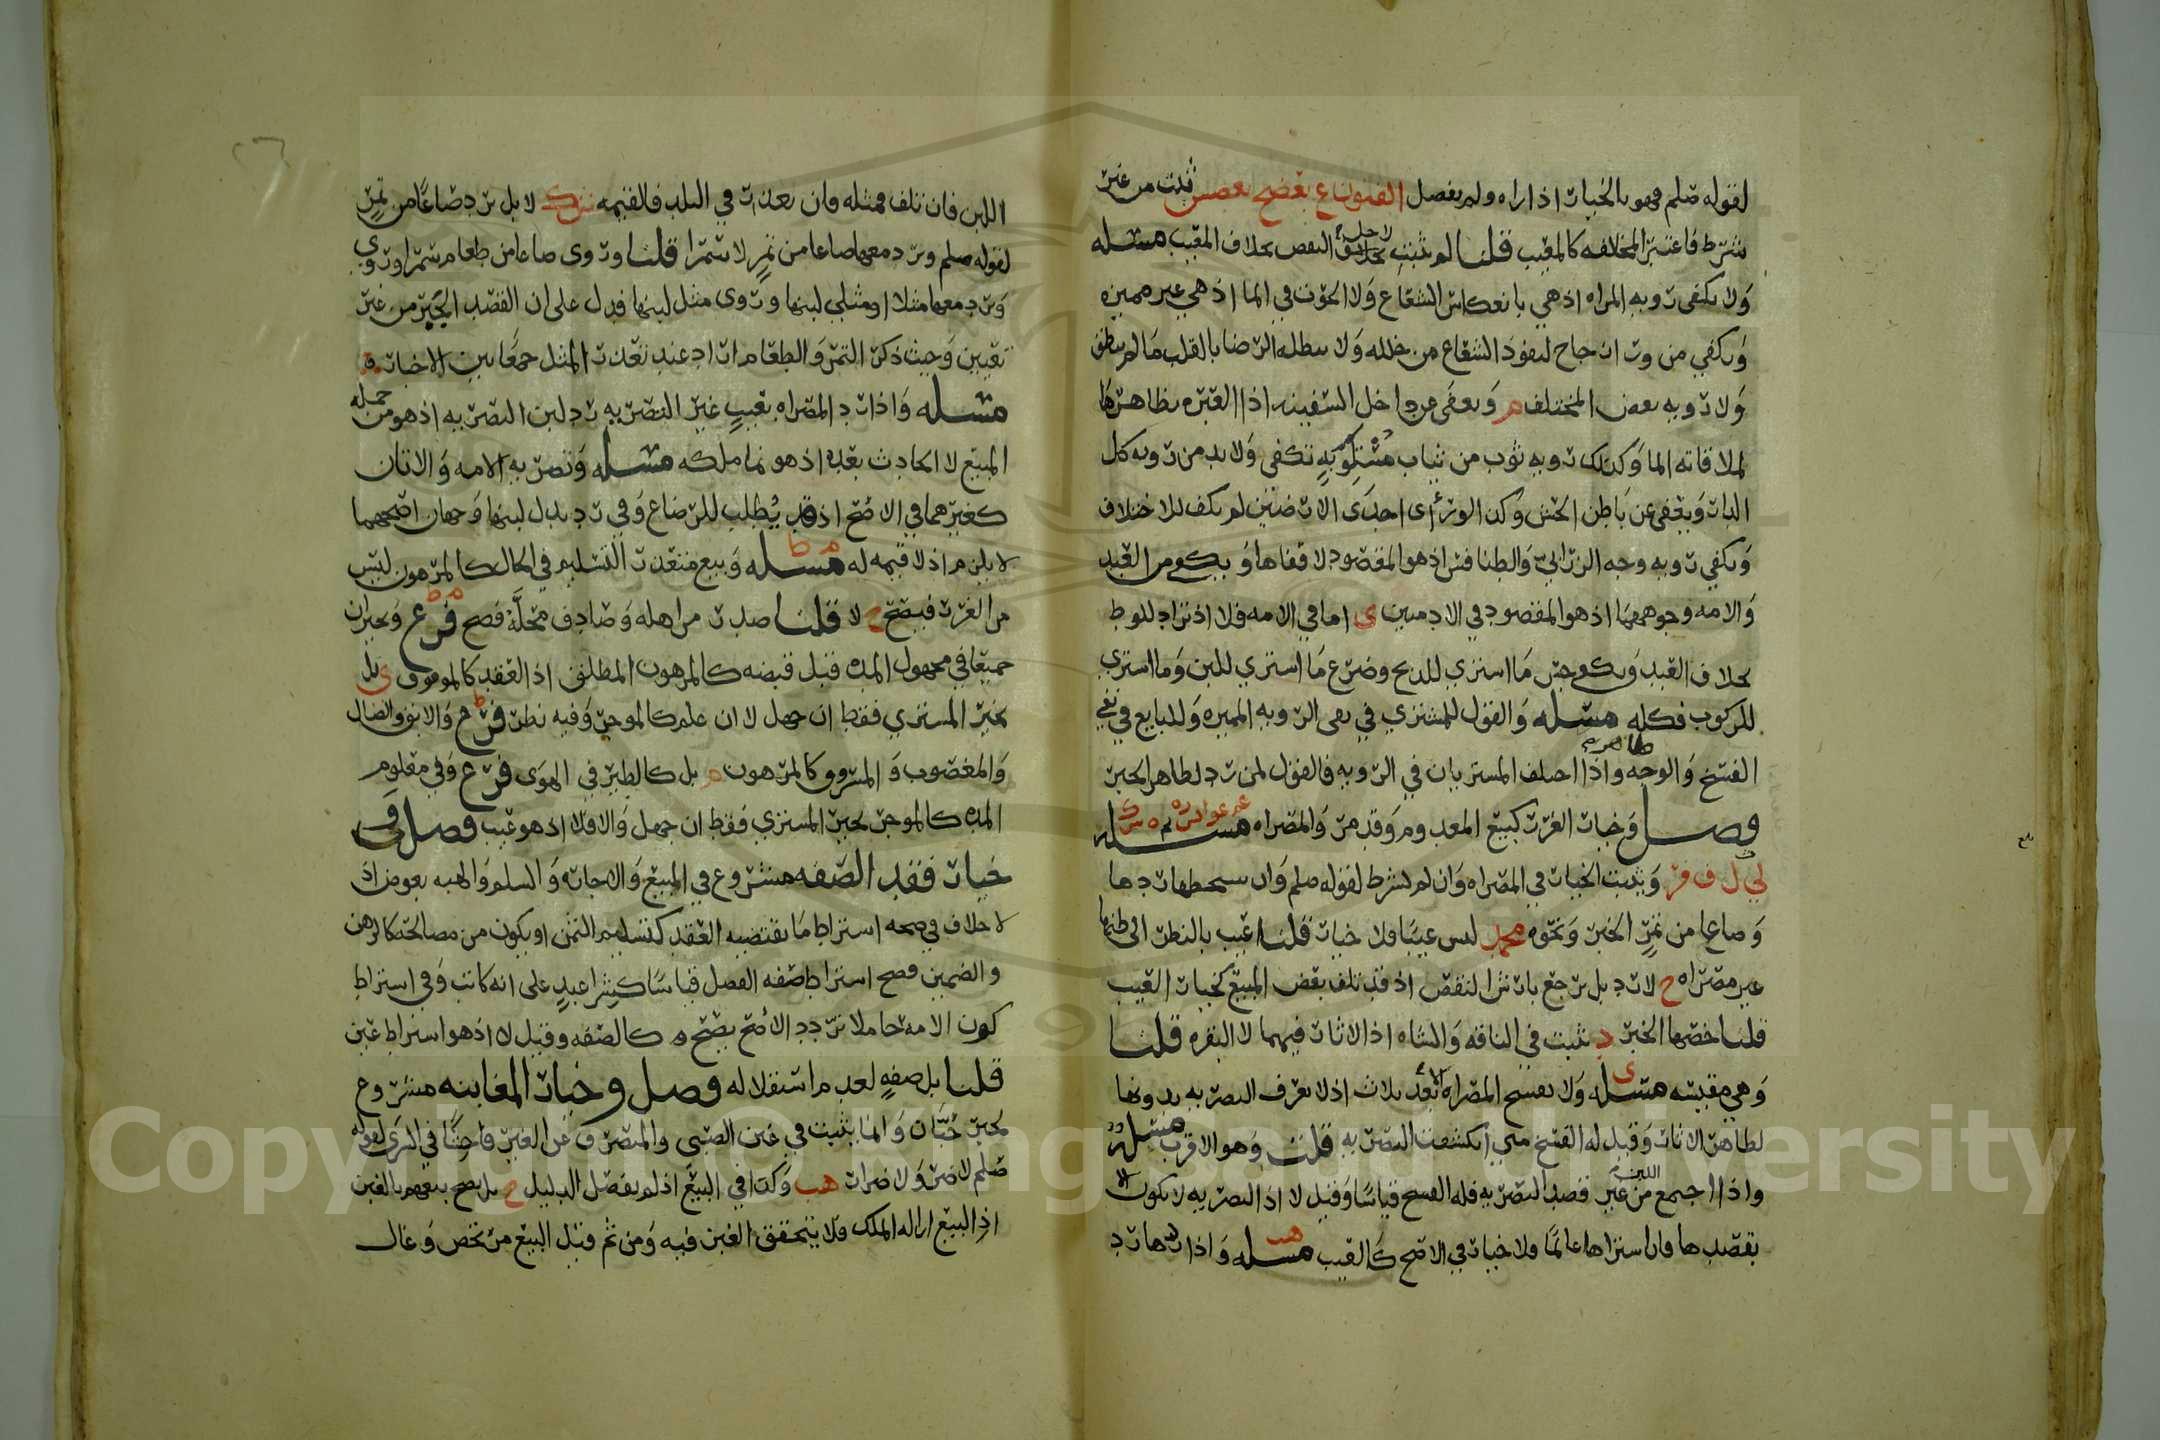 لقوله صلم فهو بالخيار اذا راه ولم يفصل الفنون ع بعضح بعص ثبت من غير
شرط فاعتبر المخالفه كالمعيب قلنا لم يثبت لاجل النقص بخلاف المعيب مسله
ولا يكفى رويه المراه اذ هي بانعكاس الشعاع ولا الحوت في الما اذ هي غير مميزه
ويكفي من ورا زجاج لنفوذ الشعاع من خلله ولا يبطله الرضا بالقلب ما لم ينطق
ولا رويه بعض المختلف م ويعفى عن داخل السفينه اذ العبره بظاهرها
لملاقاته الما وكذلك رويه ثوب من ثياب مستويه تكفي ولا بد من رويه كل
الدار ويعفى عن باطن الحش وكذا لو رأى احدى الارضين لم يكف للاختلاف
ويكفي رويه وجه الزرابي والطنافس اذ هو المقصود لا قفاها ويكفي من العبد
والامه وجوههما اذ هو المقصود في الادميين ى اما في الامه فلا اذ تراد للوط
بخلاف العبد ويكفي جس ما اشتري للذبح وضرع ما اشتري للبن وما اشتري
للركوب فكله مسله والقول للمشتري في نفى الرويه المميزه وللبايع في نفي
الفسخ والوجه ظاهر واذا اختلف المشتريان في الرويه فالقول لمن رد لظاهر الخبر
فصل وخيار الغرر كبيع المعدوم وقد مر والمصراه مسله
لي ل ف فر ويثبت الخيار في المصراه وان لم يشرط لقوله صلم وان سخطها ردها
وصاعا من تمر الخبر ونحوه محمد ليس عيبا فلا خيار قلنا عيب بالنظر الى ظنها
غير مصراه ح لا رد بل يرجع بارش النقص اذ قد تلف بعض المبيع كخيار العيب
قلنا خصها الخبر د يثبت في الناقه والشاه اذ الاثار فيهما لا البقره قلنا
وهي مقيسه مسله ولا يفسخ المصراه الا بعد ثلاث اذ لا يعرف التصريه بدونها
لظاهر الاثار وقيل له الفسخ متى انكشفت التصريه قلت وهو الاقرب مسله
واذا اجتمع اللبن من غير قصد التصريه فله الفسخ قياسا وقيل لا اذ التصريه لا يكون الا
بقصدها فان اشتراها عالما فلا خيار في الاصح كالعيب مسله واذا ردها رد
اللبن فان تلف فمثله فان تعذر في البلد فالقيمه لا بل يرد صاعا من تمر
لقوله صلم ويرد معها صاعا من تمر لا سمرا قلنا وروى صاعا من طعام سمرا وروي
ويرد معها مثل او مثلي لبنها وروى مثل لبنها فدل على ان القصد الجبر من غير
تعيين وحيث ذكر التمر والطعام اراد عند تعذر المثل جمعا بين الاخبار
مسله واذا رد المصراه بعيب غير التصريه رد لبن التصريه اذ هو من جمله
المبيع لا الحادث بعده اذ هو نما ملكه مسله وتصريه الامه والاتان
كغيرهما في الاصح اذ قد يطلب للرضاع وفي رد بدل لبنها وجهان اصحهما
لا يلزم اذ لا قيمه له مسله وبيع متعذر التسليم في الحال كالمرهون ليس
من الغرر فيصح ح لا قلنا صدر من اهله وصادف محله فصح فرع ويخيران
جميعا في مجهول المده قبل قبضه كالمرهون المطلق اذ العقد كالموقوف ى بل
يخير المشتري فقط ان جهل لا ان علم كالموجر وفيه نظر فرع والابق والضال
والمغصوب والمسروق كالمرهون م بل كالطير في الهوى فرع وفي معلوم
المده كالموجر يخير المشتري فقط ان جهل والا فلا اذ هو عيب فصل و
خيار فقد الصفه مشروع في المبيع والاجاره والسلم والهبه بعوض اذ
لا خلاف في صحه اشتراط ما يقتضيه العقد كتسليم الثمن او يكون من مصالحه كالرهن
والضمين فصح اشتراط صفه الفضل قياسا كشرا عبد على انه كاتب وفي اشتراط
كون الامه حاملا تردد الاصح يصح ه كالصفه وقيل لا اذ هو اشتراط عين
قلنا بل صفه لعدم استقلاله فصل وخيار المغابنه مشروع
لخبر حبان وانما يثبت في غبن الصبي والمتصرف عن الغير فاحشا في الشرى لقوله
صلم لا ضرر ولا ضرار هب وكذا في البيع اذ لم يفصل الدليل ح بل يصح بيعهم بالغبن
اذ البيع ازاله الملك فلا يتحقق الغبن فيه ومن ثم قيل البيع مرتخص وغال